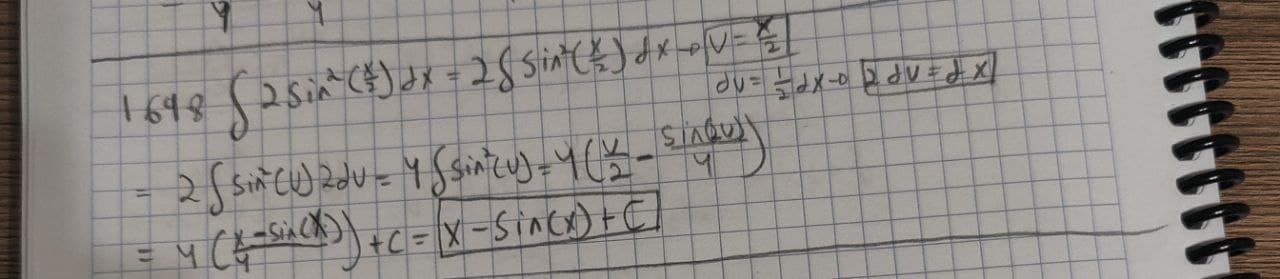 y y
1698 ∫ 2 sin²(x/2) dx = 2 ∫ sin²(x/2) dx → v = x/2
dv = 1/2 dx → 2 dv = dx
= 2 ∫ sin²(v) 2dv = 4 ∫ sin²(v) = 4 (v/2 - sin(2v)/4)
= 4 (x - sin(x)/4) + c = x - sin(x) + C